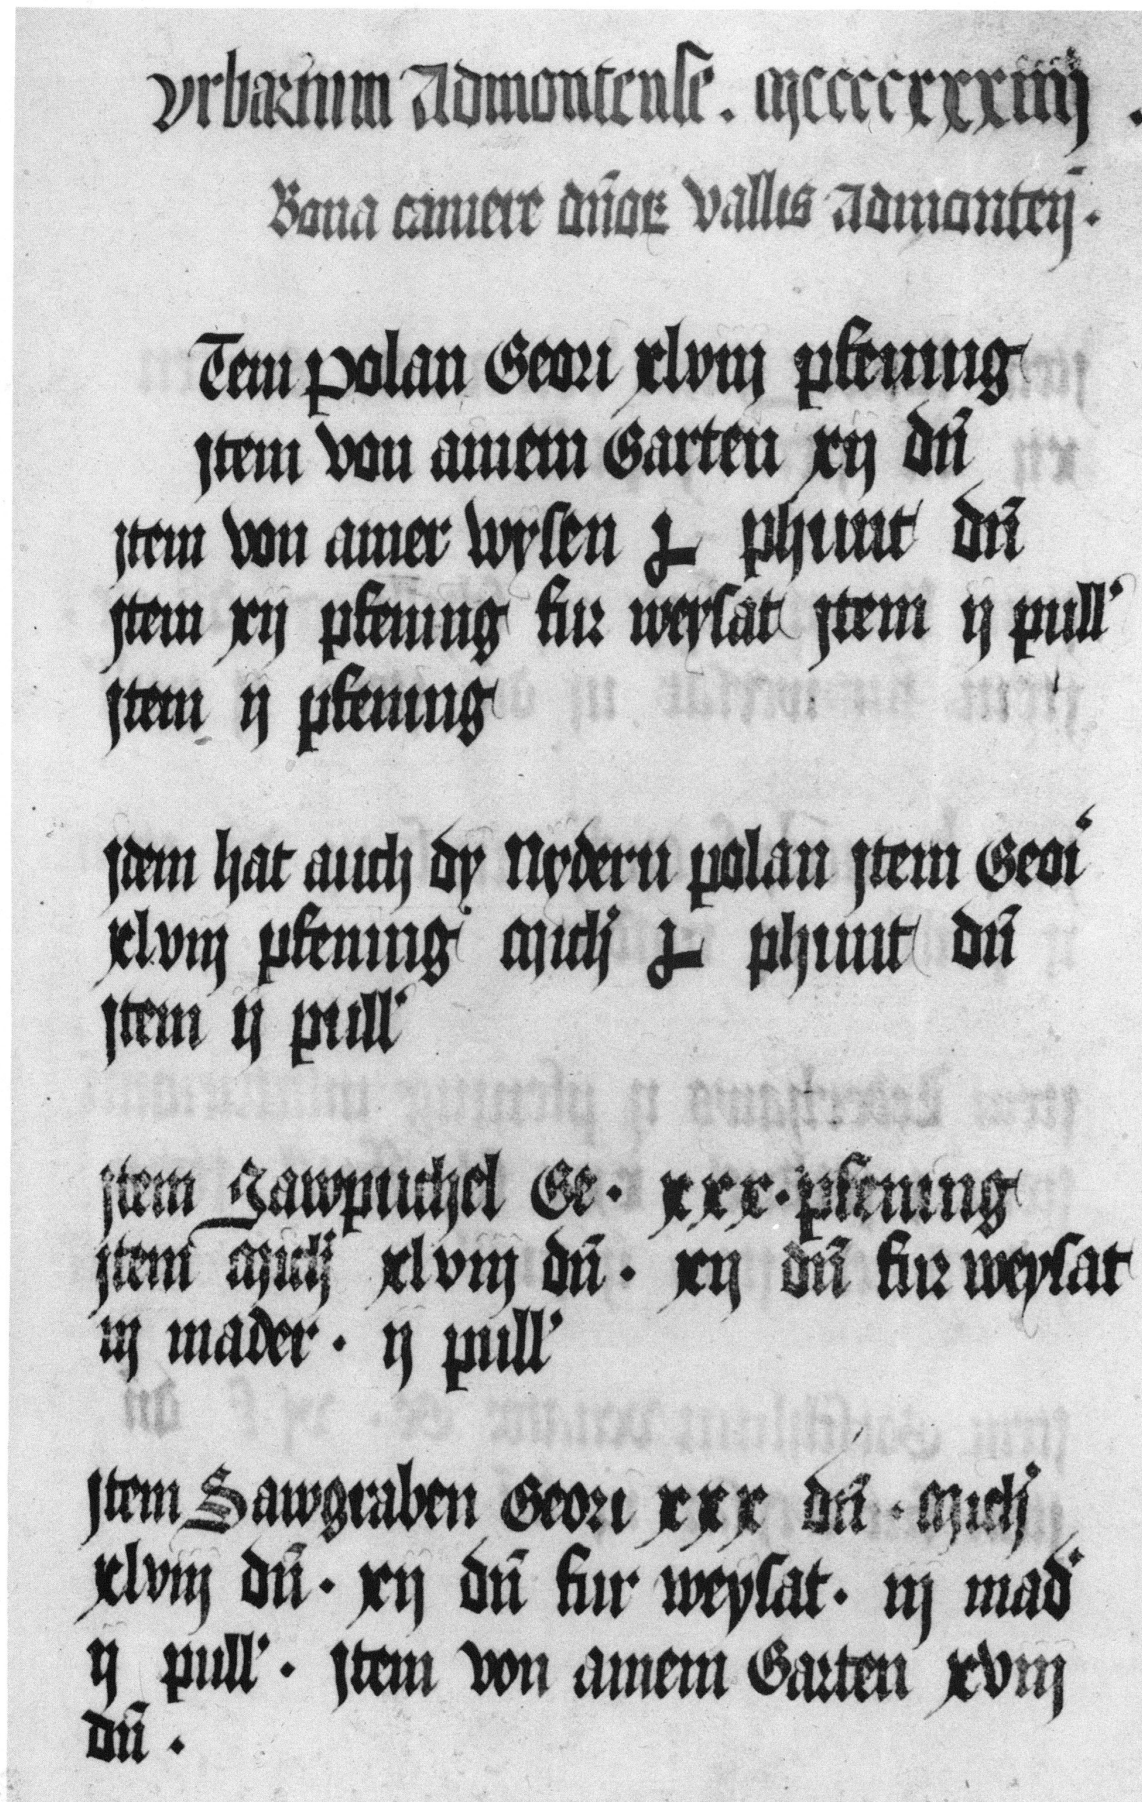 Urbarium Admontense . Mccccxxxiiij .
Bona camere dn̄oꝝ Vallis Admonteñ .
Item Polan Geori xlviij pfening
Item von ainem Garten xij dn̄
Item von ainer wysen ꝉ phunt dn̄
Item xij pfening fur weysat Item ij pull'
Item ij pfening
Idem hat auch dy Nydern polan Item Geori
xlviij pfening Mich' ꝉ phunt dn̄
Item ij pull'
Item Sawpuchel Ge . xxx . pfening
Item Mich' xlviij dn̄ . xij dn̄ fur weysat
iij mader . ij pull'
Item Sawgraben Geori xxx dn̄ . Mich'
xlviij dn̄ . xij dn̄ fur weysat . iij mad'
ij pull' . Item von ainem Garten xviij
dn̄ .